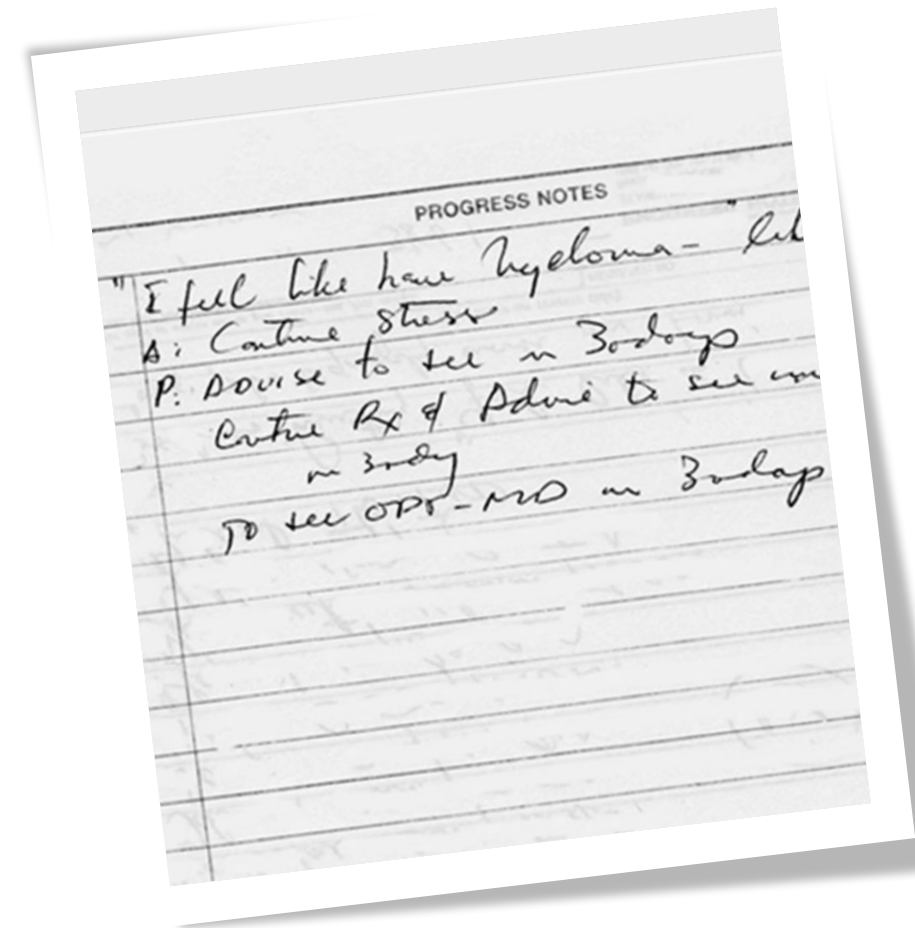 PROGRESS NOTES
"I feel like have Myeloma - "
A: Continue Stress
P: ADVISE to see in 30 days
Continue Rx & Advise to see
in 30 day
To see OPT-MD in 30 days